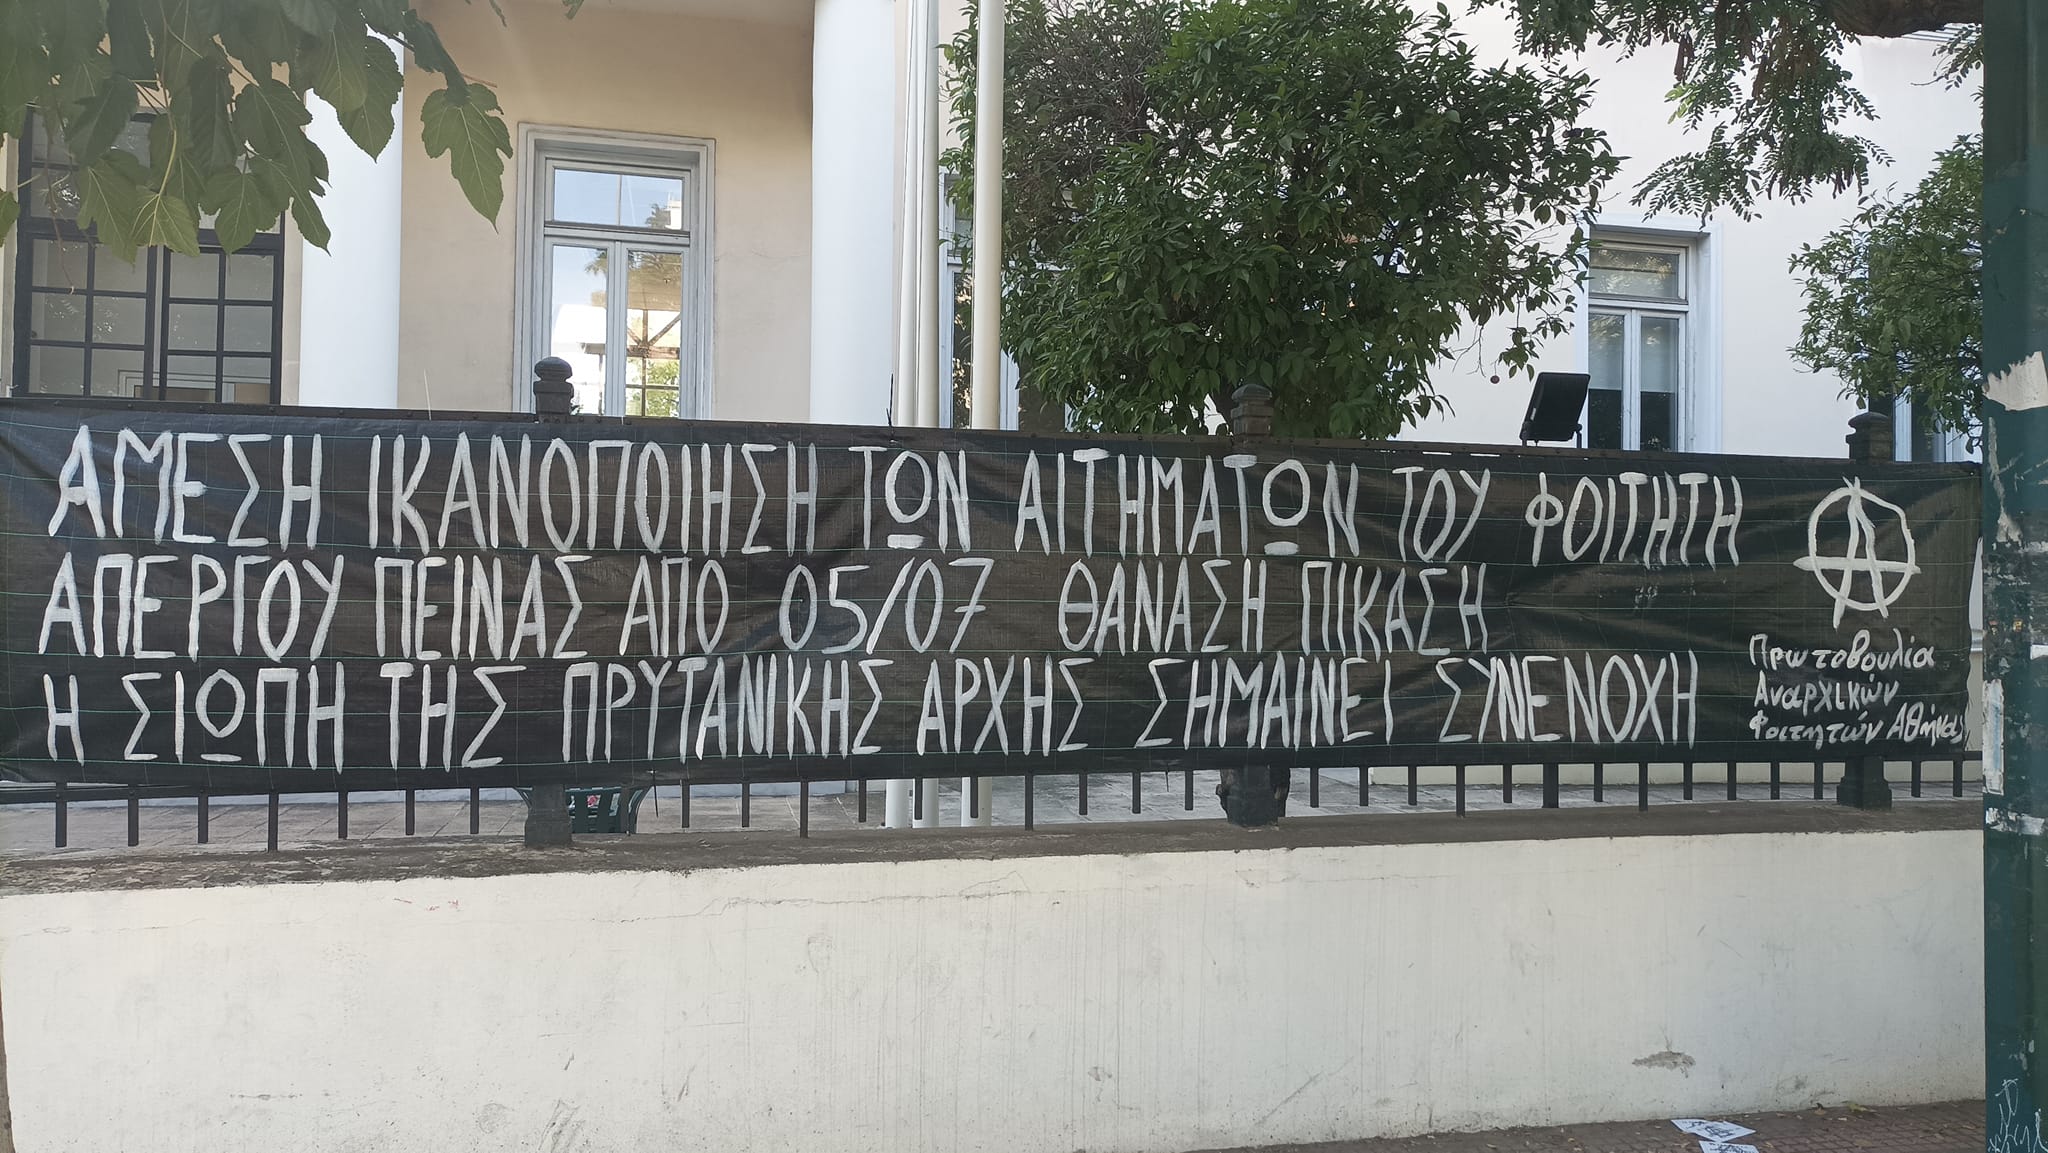 ΑΜΕΣΗ ΙΚΑΝΟΠΟΙΗΣΗ ΤΩΝ ΑΙΤΗΜΑΤΩΝ ΤΟΥ ΦΟΙΤΗΤΗ
ΑΠΕΡΓΟΥ ΠΕΙΝΑΣ ΑΠΟ 05/07 ΘΑΝΑΣΗ ΠΙΚΑΣΗ
Η ΣΙΩΠΗ ΤΗΣ ΠΡΥΤΑΝΙΚΗΣ ΑΡΧΗΣ ΣΗΜΑΙΝΕΙ ΣΥΝΕΝΟΧΗ
Πρωτοβουλία
Αναρχικών
Φοιτητών Αθήνας